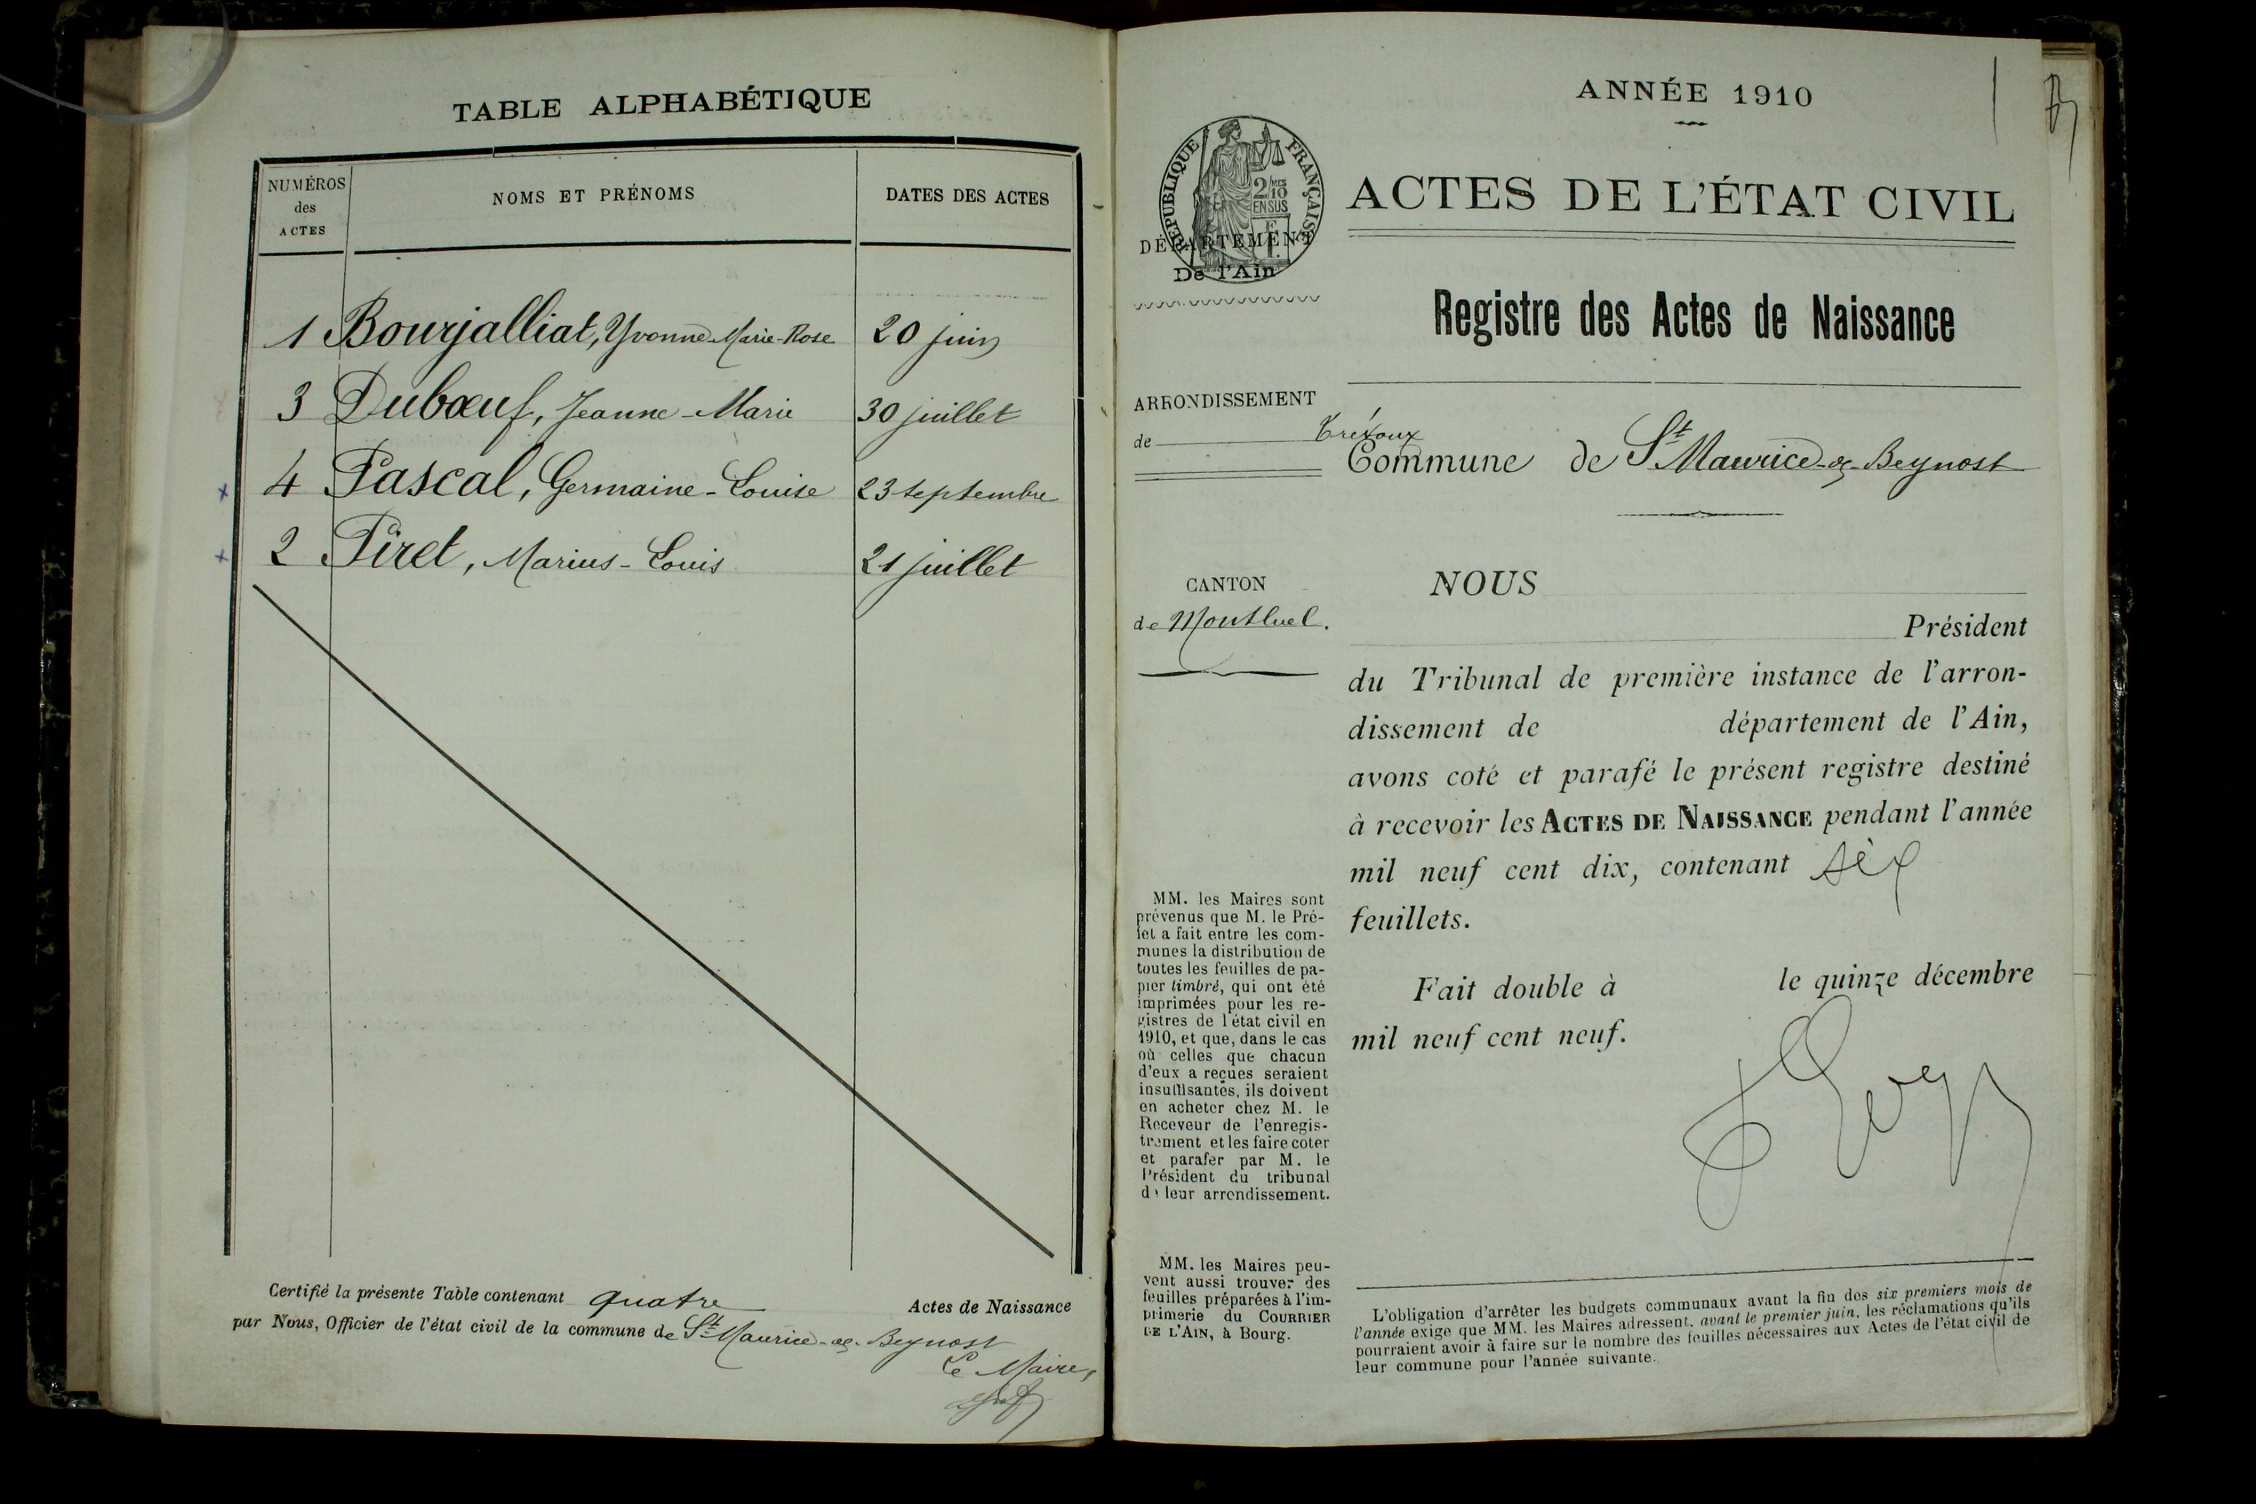 TABLE ALPHABÉTIQUE
NUMÉROS
des
ACTES
NOMS ET PRÉNOMS
DATES DES ACTES
1 Bourjalliat, Yvonne-Marie-Rose 20 juin
3 Dubœuf, Jeanne-Marie 30 juillet
4 Pascal, Germaine-Louise 23 septembre
2 Piret, Marius-Louis 21 juillet
Certifié la présente Table contenant quatre Actes de Naissance
par Nous, Officier de l'état civil de la commune de St Maurice-de-Beynost
Le Maire,
ANNÉE 1910
RÉPUBLIQUE FRANÇAISE
2/10 MES
EN SUS
DÉPARTEMENT
De l'Ain
ACTES DE L'ÉTAT CIVIL
Registre des Actes de Naissance
ARRONDISSEMENT
de Trévoux
Commune de St Maurice-de-Beynost
CANTON
de Montluel.
NOUS
Président
du Tribunal de première instance de l'arron-
dissement de département de l'Ain,
avons coté et parafé le présent registre destiné
à recevoir les ACTES DE NAISSANCE pendant l'année
mil neuf cent dix, contenant six
feuillets.
Fait double à le quinze décembre
mil neuf cent neuf.
MM. les Maires sont
prévenus que M. le Pré-
fet a fait entre les com-
munes la distribution de
toutes les feuilles de pa-
pier timbré, qui ont été
imprimées pour les re-
gistres de l'état civil en
1910, et que, dans le cas
où celles que chacun
d'eux a reçues seraient
insuffisantes, ils doivent
en acheter chez M. le
Receveur de l'enregis-
trement et les faire coter
et parafer par M. le
Président du tribunal
de leur arrondissement.
MM. les Maires peu-
vent aussi trouver des
feuilles préparées à l'im-
primerie du COURRIER
DE L'AIN, à Bourg.
L'obligation d'arrêter les budgets communaux avant la fin des six premiers mois de
l'année exige que MM. les Maires adressent, avant le premier juin, les réclamations qu'ils
pourraient avoir à faire sur le nombre des feuilles nécessaires aux Actes de l'état civil de
leur commune pour l'année suivante.